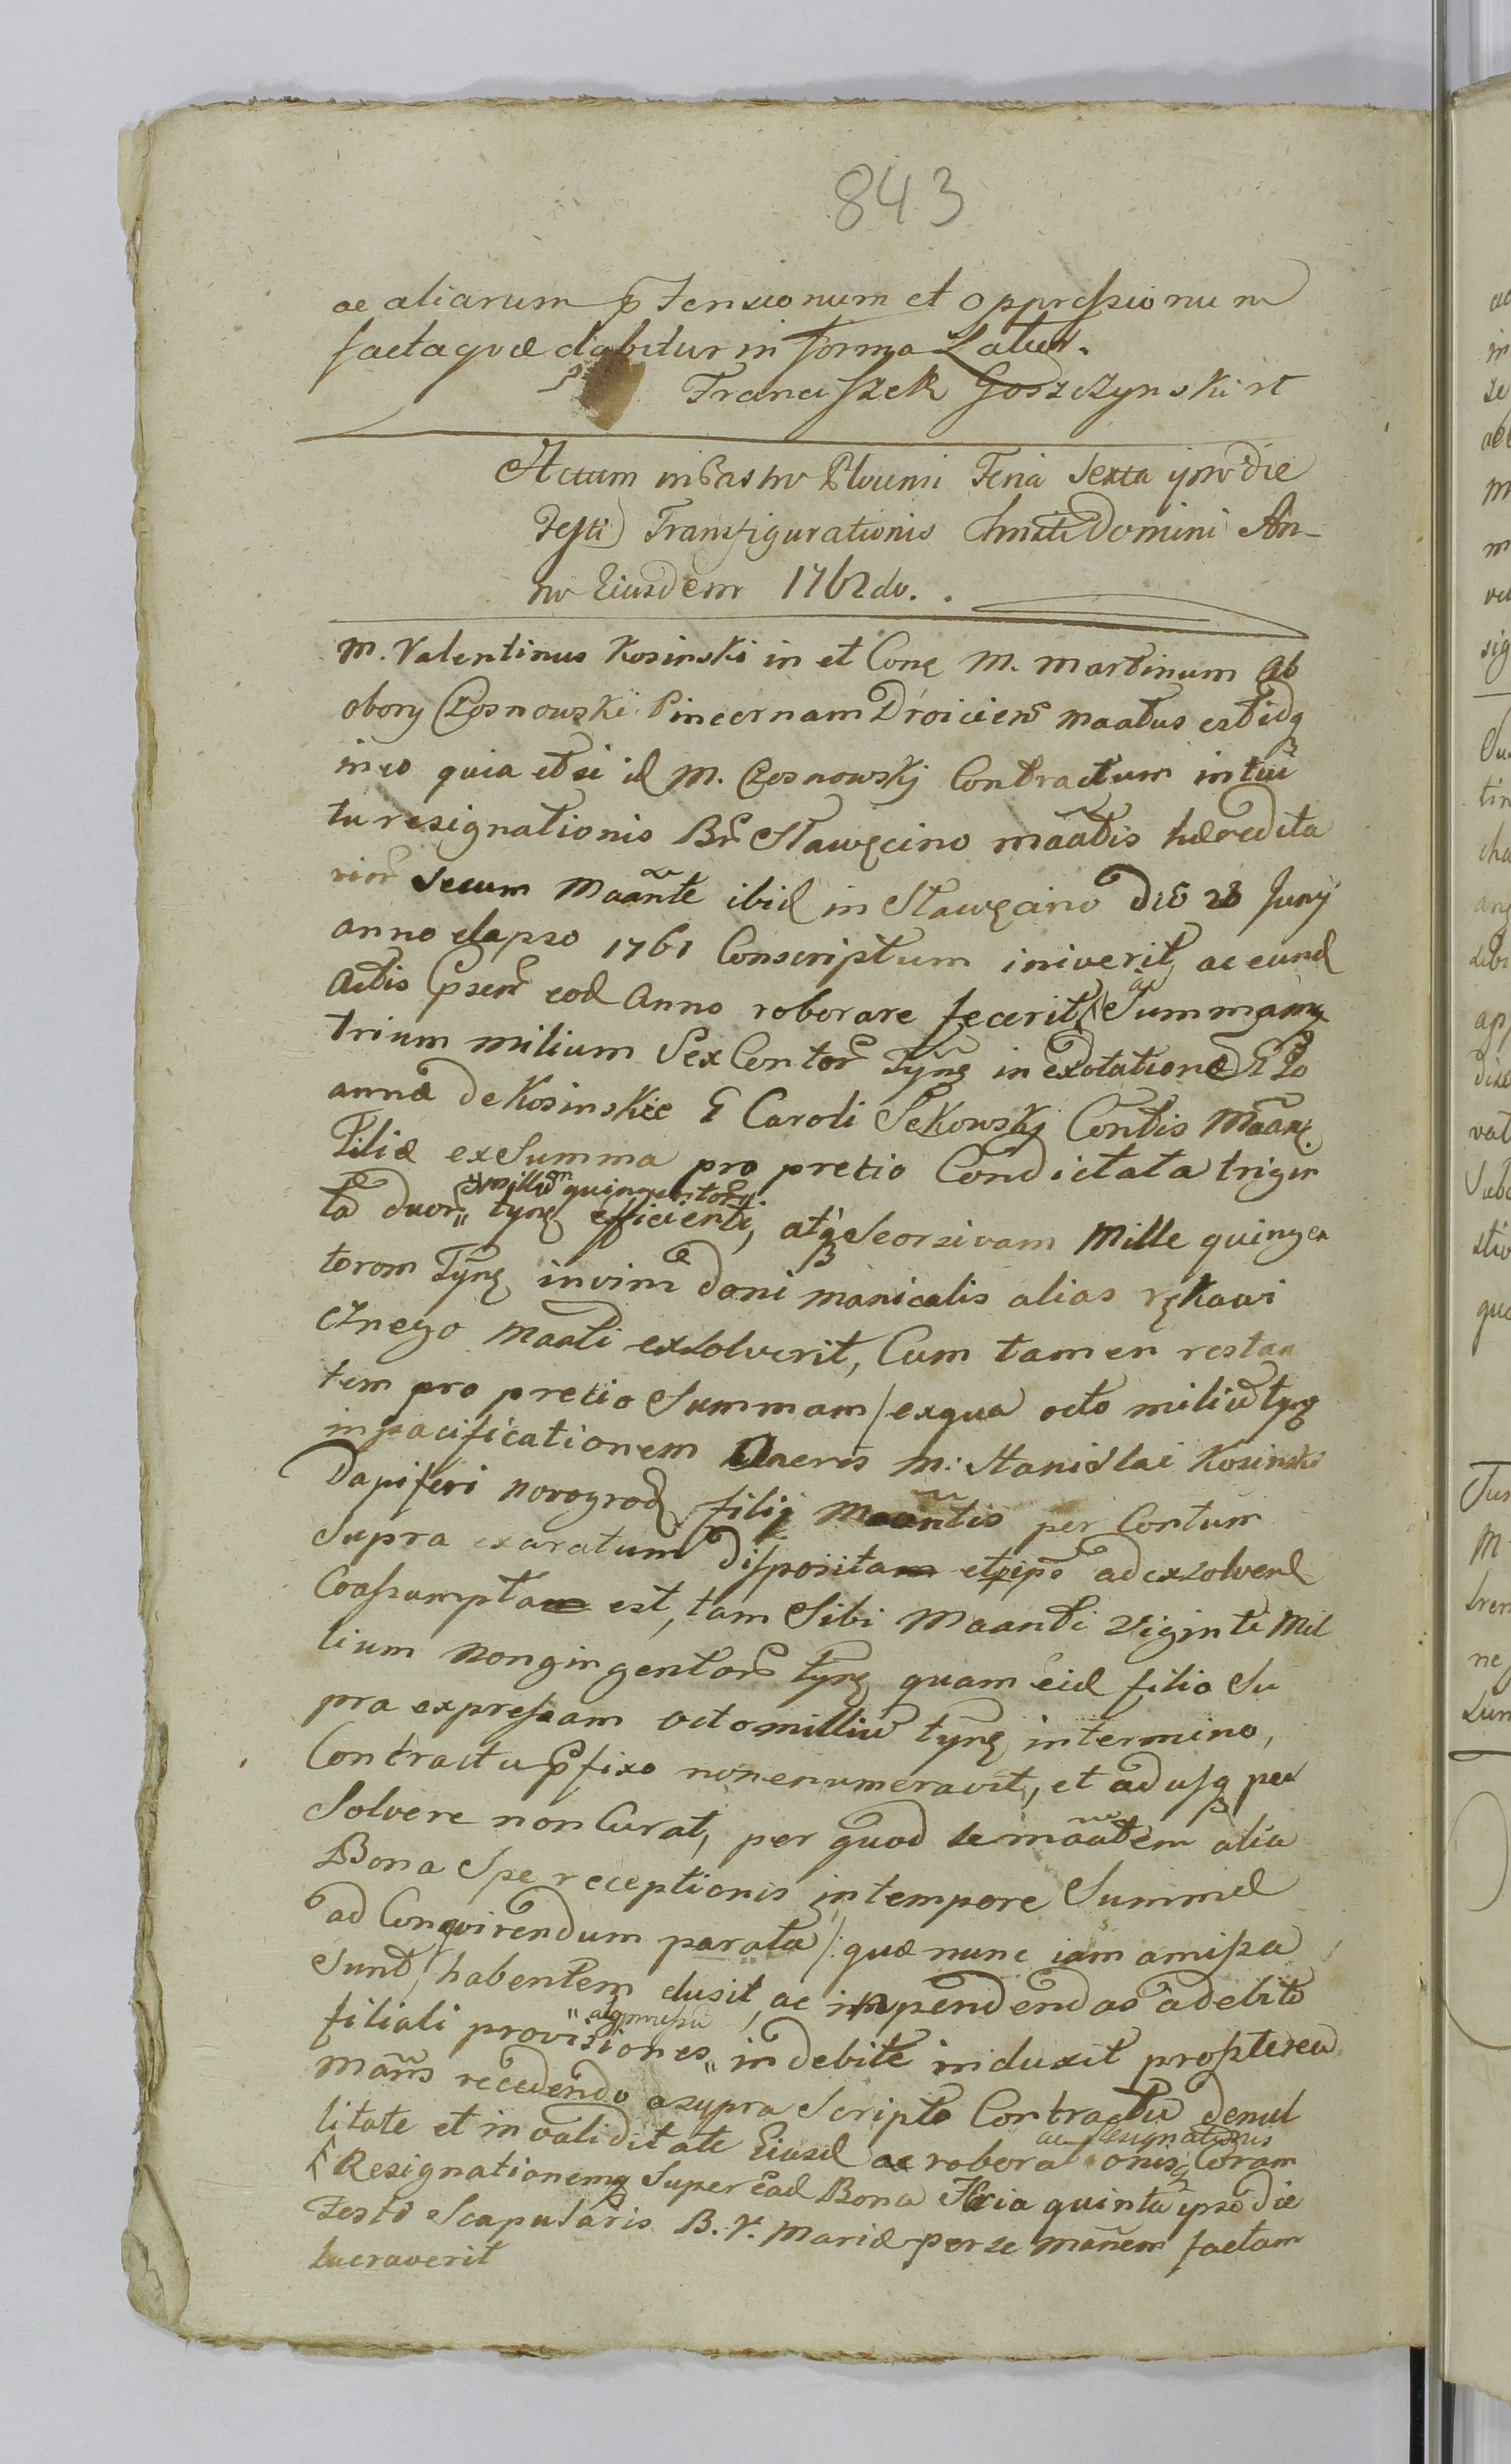 843
ac aliarum ptensionum et oppressionum
factaque dabitur in forma Later.
Franciszek Goszczynski
Actum in Castro Feria Sexta ipso die
Festi Transfigurationis Christi Domini An-
no Eiusdem 1762do.
M. Valentinus Kosinski in et Conę M. Martinum ab
obory Czosnowski Pincernam Droiciens maatus est idq
in eo quia etsi il M. Czosnowskj Contractum intui
tu resignationis Br Sławęcino maatis hæredita
rior secum Maante ibid in Sławęcino die 28 Junij
anno elapso 1761 Conscriptum iniverit, ac eund
Actis eod Anno roborare fecerit, ac Summamq
trium milium Sex Centor Tynę in exdotatione Jo
annæ de Kosinskie Caroli Sękowskj Contis Maan
Filiæ ex Summa pro pretio Condictata trigin
ta duor millium quingentor tynę efficienti, atq Seorsivam Mille quingen
torom Tynę in vim doni manicalis alias rękawi
cznego Maati exsolverit, Cum tamen restan
tem pro pretio Summam / ex qua octo miliu tynę
in pacificationem M: Stanislai Kosinski
Dapiferi Novogrod filij Maantis per Contum
supra exaratum disposita et ipso ad exsolvend
Coassumpta est, tam Sibi Maanti Viginti Mil
lium Nongingentor Tynę quam eid filio Su
pra expressam octo milliu tynę in termino,
Contractu pfixo non enumeravit, et ad usq per
Solvere non Curat, per quod se maatem alia
Bona Spe receptionis in tempore Summæ
ad Conquirendum parata /: quæ nunc iam amissa
Sunt, habentem elusit, ac impendendas a debito
filiali provisiones indebite induxit propterea
Maans recedendo a supra Scripto Contractu de nul
litate et invaliditate Eiusd ac roborationis ac Resignationis Coram
Resignationemq super ead Bona Feria quinta ipso die
Festo Scapularis B. V. Mariæ per se Manem factam
lucraverit